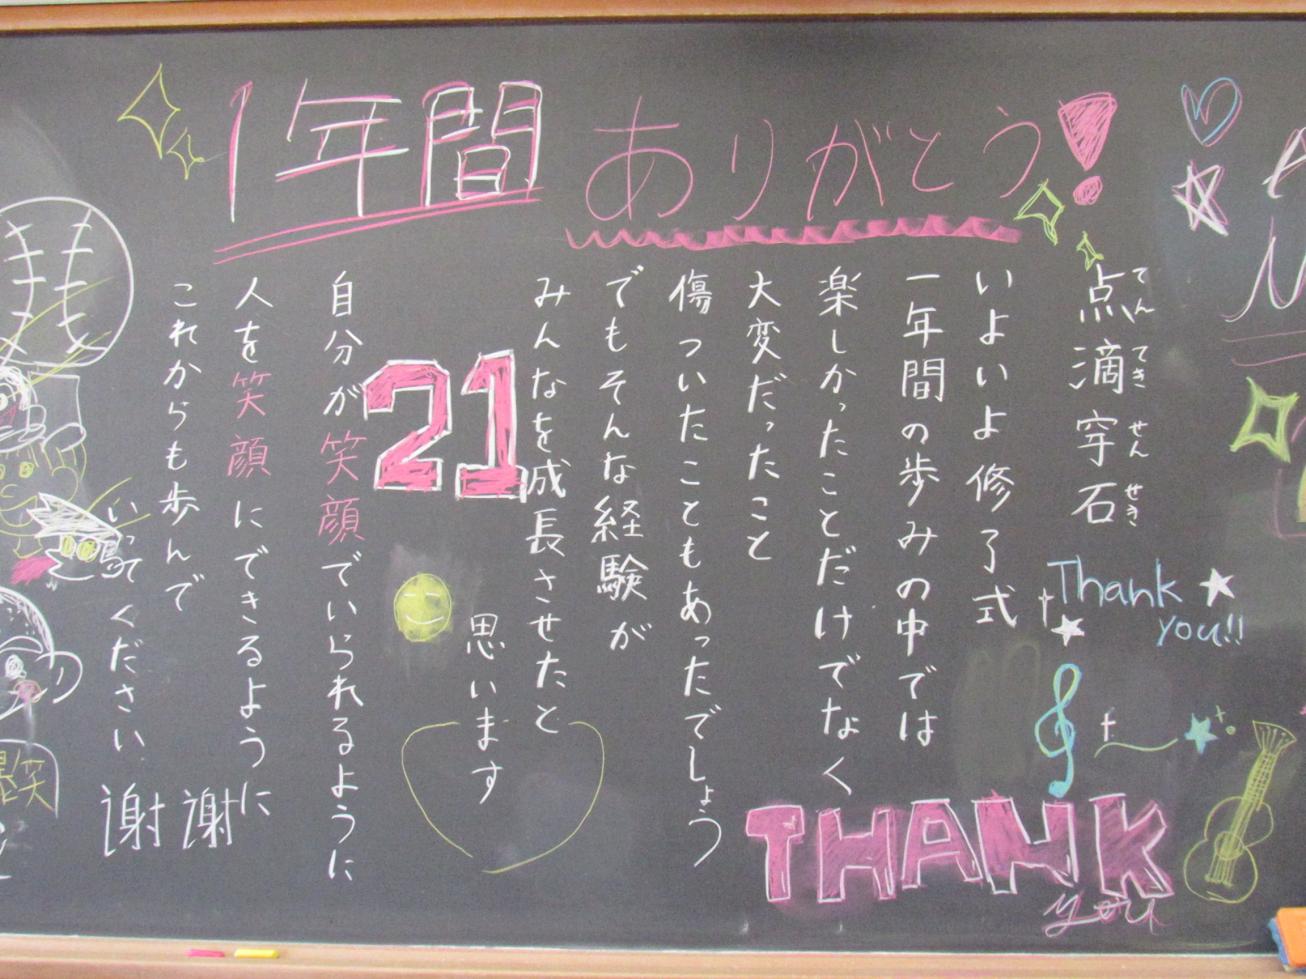 1年間ありがとう!
点滴穿石
てんてきせんせき
いよいよ修了式
一年間の歩みの中では
楽しかったことだけでなく
大変だったこと
傷ついたこともあったでしょう
でもそんな経験が
みんなを成長させたと
思います
21
自分が笑顔でいられるように
人を笑顔にできるように
これからも歩んで
いってください
谢谢
Thank
you!!
THANK
you